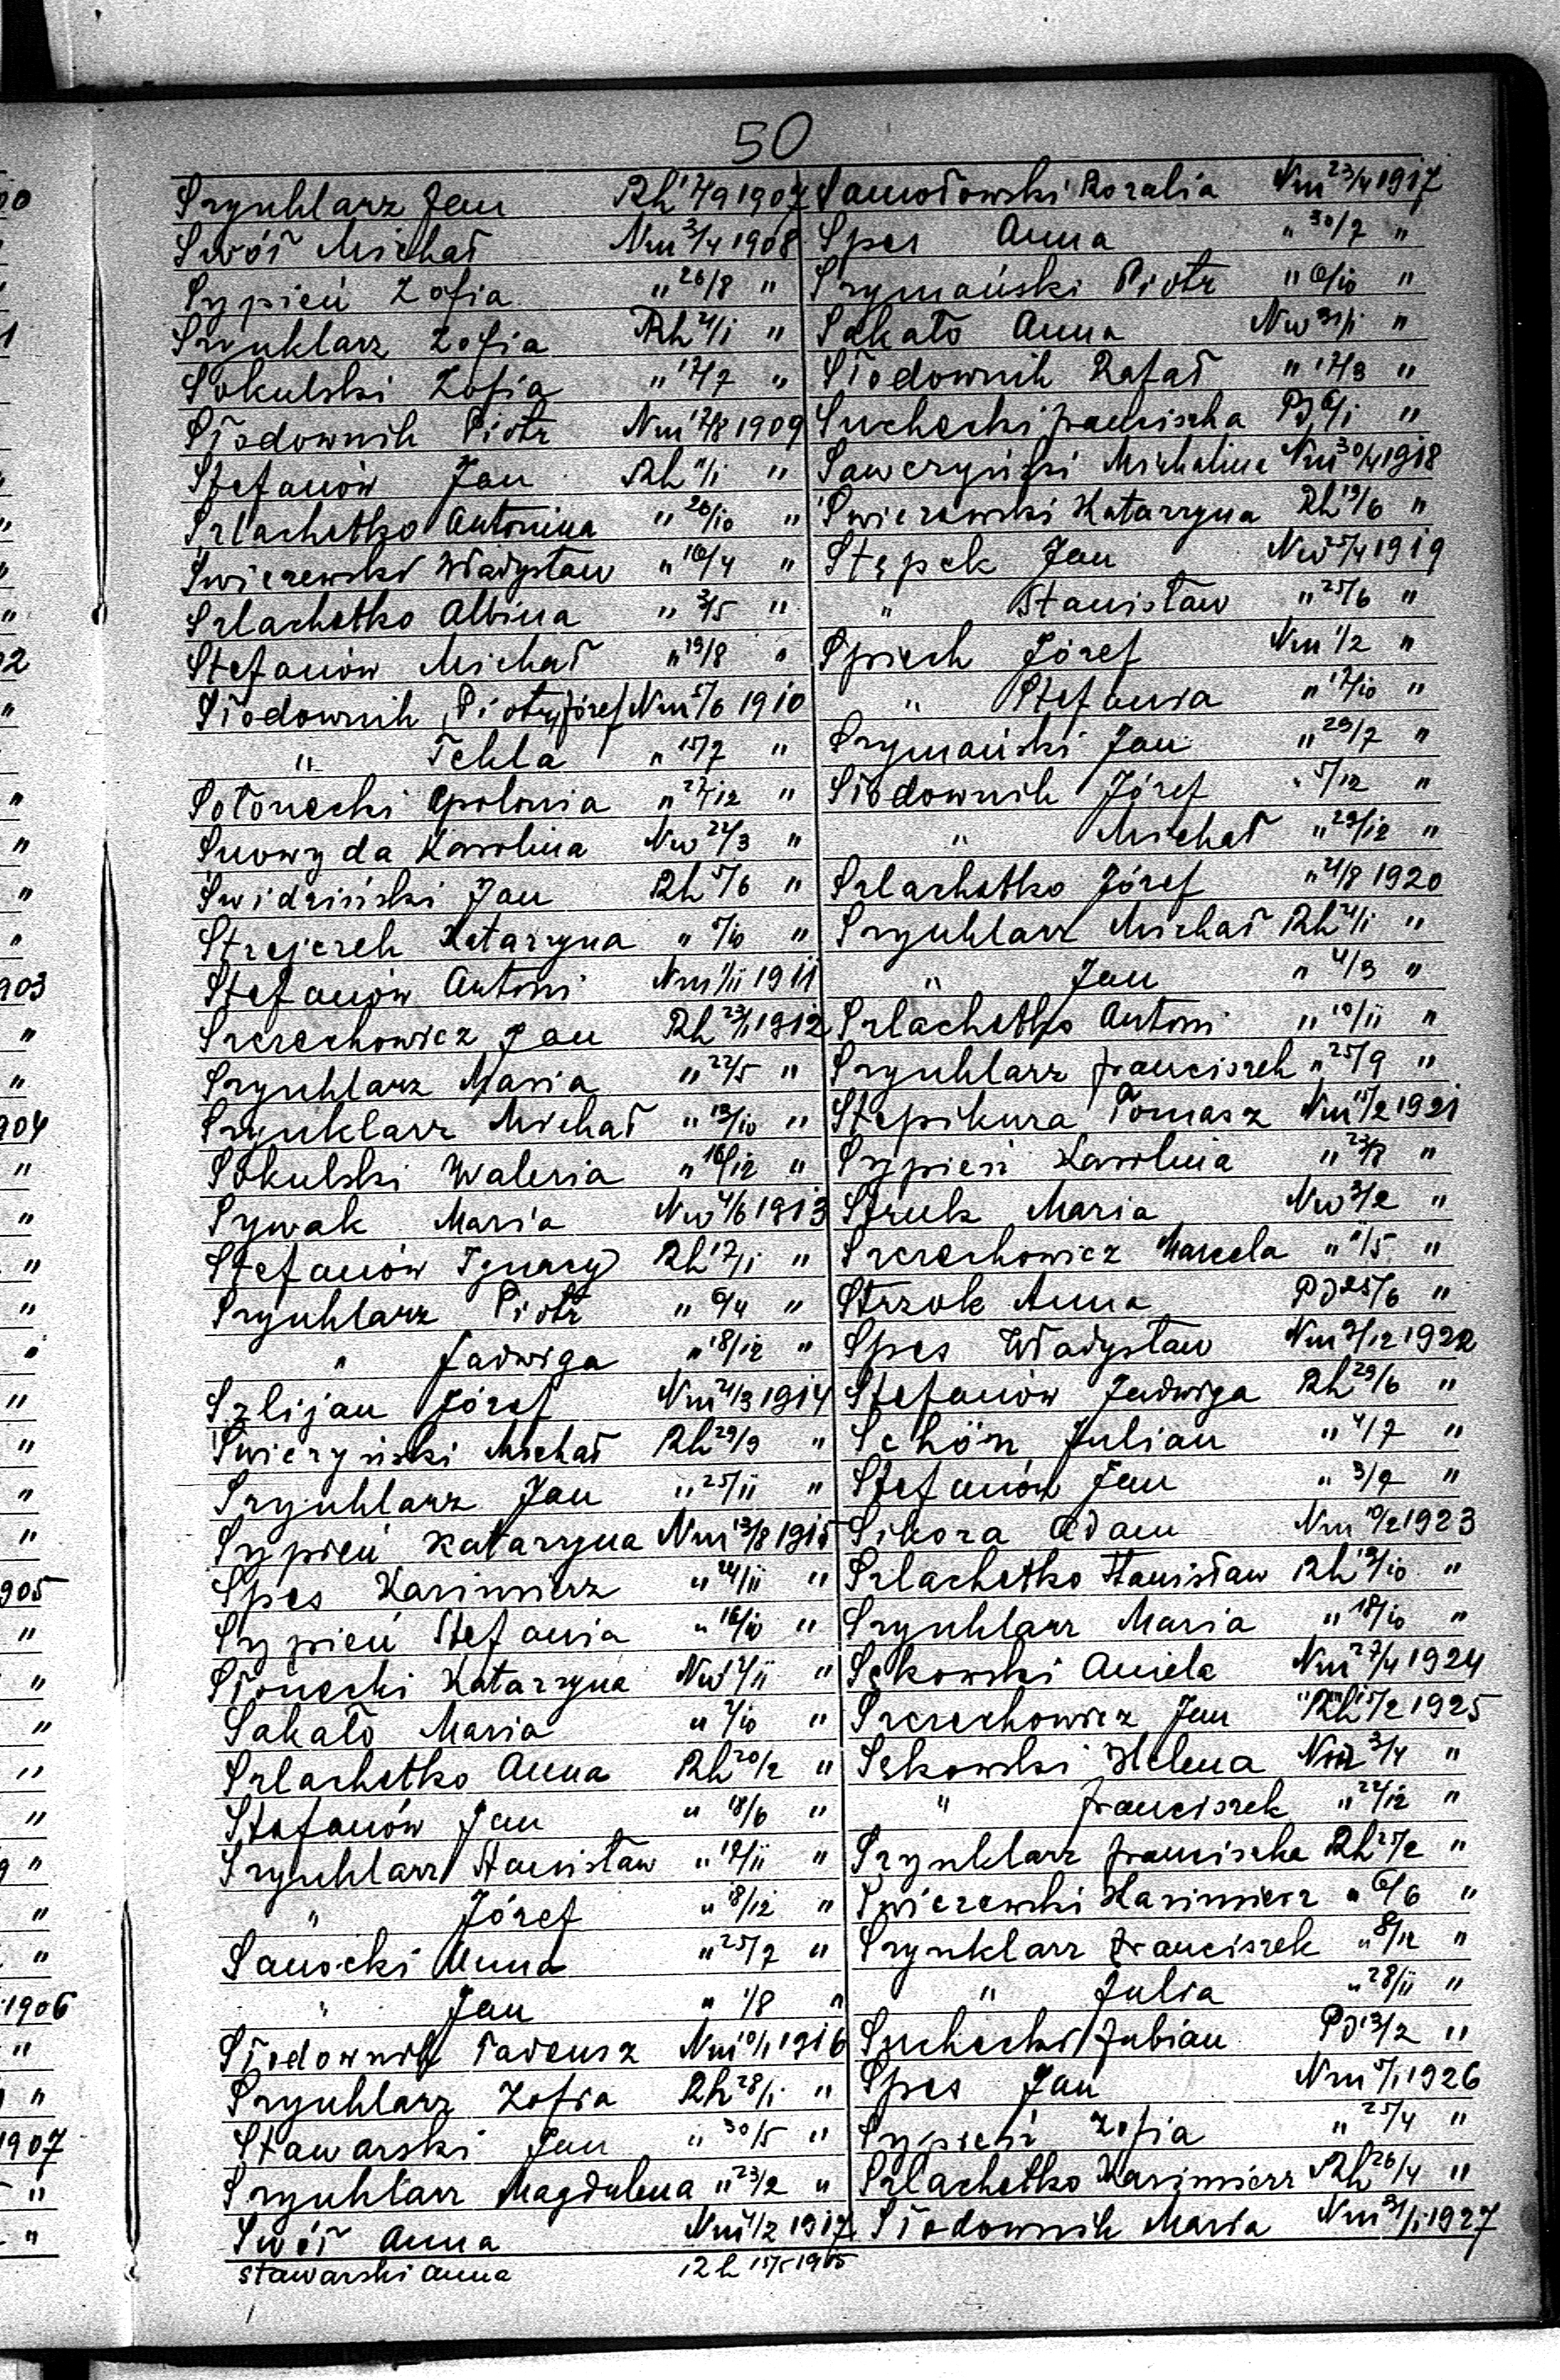 50
Szynklarz Jan Rh 17/9 1907
Swół Michał Nm 3/4 1908
Sypień Zofia " 26/8 "
Szynklarz Zofia Rh 21/1 "
Sokulski Zofia " 17/7 "
Słodownik Piotr Nm 17/8 1909
Stefanów Jan Rh 11/1 "
Szlachetko Antonina " 20/10 "
Świerzewski Władysław " 16/4 "
Szlachetko Albina " 3/5 "
Stefanów Michał " 19/8 "
Słodownik Piotr, Józef Nm 5/6 1910
" Tekla " 15/7 "
Sołonecki Apolonia " 27/12 "
Snowyda Karolina Nw 22/3 "
Świdziński Jan Rh 5/6 "
Strejczek Katarzyna " 5/10 "
Stefanów Antoni Nm 1/11 1911
Szczechowicz Jan Rh 23/1 1912
Szynklarz Maria " 22/5 "
Szynklarz Michał " 13/10 "
Sokulski Waleria " 16/12 "
Sywak Maria Nw 4/6 1913
Stefanów Ignacy Rh 17/1 "
Szynklarz Piotr " 6/4 "
" Jadwiga " 18/12 "
Szlijan Józef Nm 21/3 1914
Świerzyński Michał Rh 29/9 "
Szynklarz Jan " 25/11 "
Sypień Katarzyna Nm 13/8 1915
Spes Kazimierz " 24/11 "
Sypień Stefania " 16/10 "
Słonecki Katarzyna Nw "
Sakało Maria " 7/10 "
Szlachetko Anna Rh 20/2 "
Stefanów Jan " 18/6 "
Szynklarz Stanisław " 19/11 "
" Józef " 18/12 "
Sanocki Anna " 25/7 "
" Jan " 1/8 "
Słodownik Tadeusz Nm 10/1 1916
Szynklarz Zofia Rh 28/1 "
Stawarski Jan " 30/5 "
Szynklarz Magdalena " 23/2 "
Swół Anna Nm 1/2 1917
Stawarski Anna 1905
Samołowski Rozalia Nm 23/4 1917
Spes Anna " 30/7 "
Szymański Piotr " 6/10 "
Sakało Anna Nw 31/1 "
Słodownik Rafał " 17/3 "
Suchecki Franciszka Pd 6/1 "
Sawczyński Michalina Nm 30/4 1918
Świerzewski Katarzyna Rh 19/6 "
Stępek Jan Nw 5/4 1919
" Stanisław " 25/6 "
Spiech Józef Nm 1/2 "
" Stefania " 17/10 "
Szymański Jan " 29/7 "
Słodownik Józef " 5/12 "
" Michał " 29/12 "
Szlachetko Józef " 21/8 1920
Szynklarz Michał Rh 21/1 "
" Jan " 4/3 "
Szlachetko Antoni " 10/11 "
Szynklarz Franciszek " 25/9 "
Stepikura Tomasz Nm 15/2 1921
Sypień Karolina " 23/8 "
Struk Maria Nw 3/2 "
Szczechowicz Marcela " 11/5 "
Strzok Anna Pd 25/6 "
Spes Władysław Nm 9/12 1922
Stefanów Jadwiga Rh 29/6 "
Schön Julian " 4/7 "
Stefanów Jan " 3/9 "
Sikora Adam Nm 10/2 1923
Szlachetko Stanisław Rh 19/10 "
Szynklarz Maria " 18/10 "
Sękowski Aniela Nm 27/4 1924
Szczechowicz Jan Rh 15/2 1925
Sękowski Helena Nm 3/4 "
" Franciszek " 22/12 "
Szynklarz Franciszka Rh 25/2 "
Świerzewski Kazimierz " 6/6 "
Szynklarz Franciszek " "
" Julia " 28/11 "
Suchecki Fabian Pd 13/2 "
Spes Jan Nm 5/1 1926
Sypień Zofia " 25/4 "
Szlachetko Kazimierz Rh 26/4 "
Słodownik Maria Nm 31/1 1927